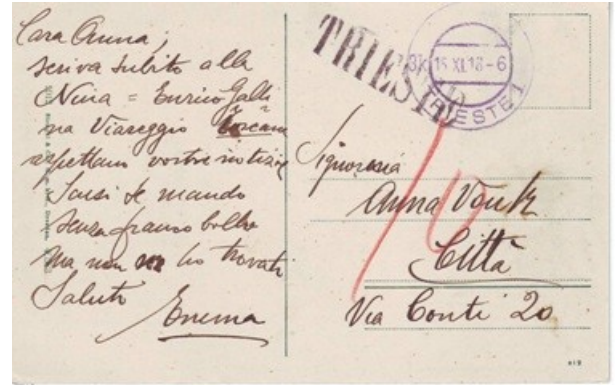 Cara Anna,
scriva subito alla
Nina = Enrico Galli
na Viareggio Toscana
aspettam vostre notizie
Scusi se mando
senza franco bollo
ma non ne ho trovati
Saluti
Emema
TRIESTE
3k 15 XI. 18 - 6
TRIESTE 1
10
Signorina
Anna
Città
Via Conti 20